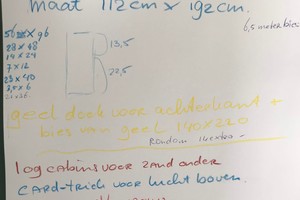 maat 112cm x 192cm.
6,5 meter bies
56 x 96
28 x 48
14 x 24
7 x 12
23 x 40
3,5 x 6
13,5
20,5
geel doek voor achterkant +
bies van geel 140 x 220
Rondom 14 extra
log cabins voor zand onder
CARD-trich voor lucht boven.